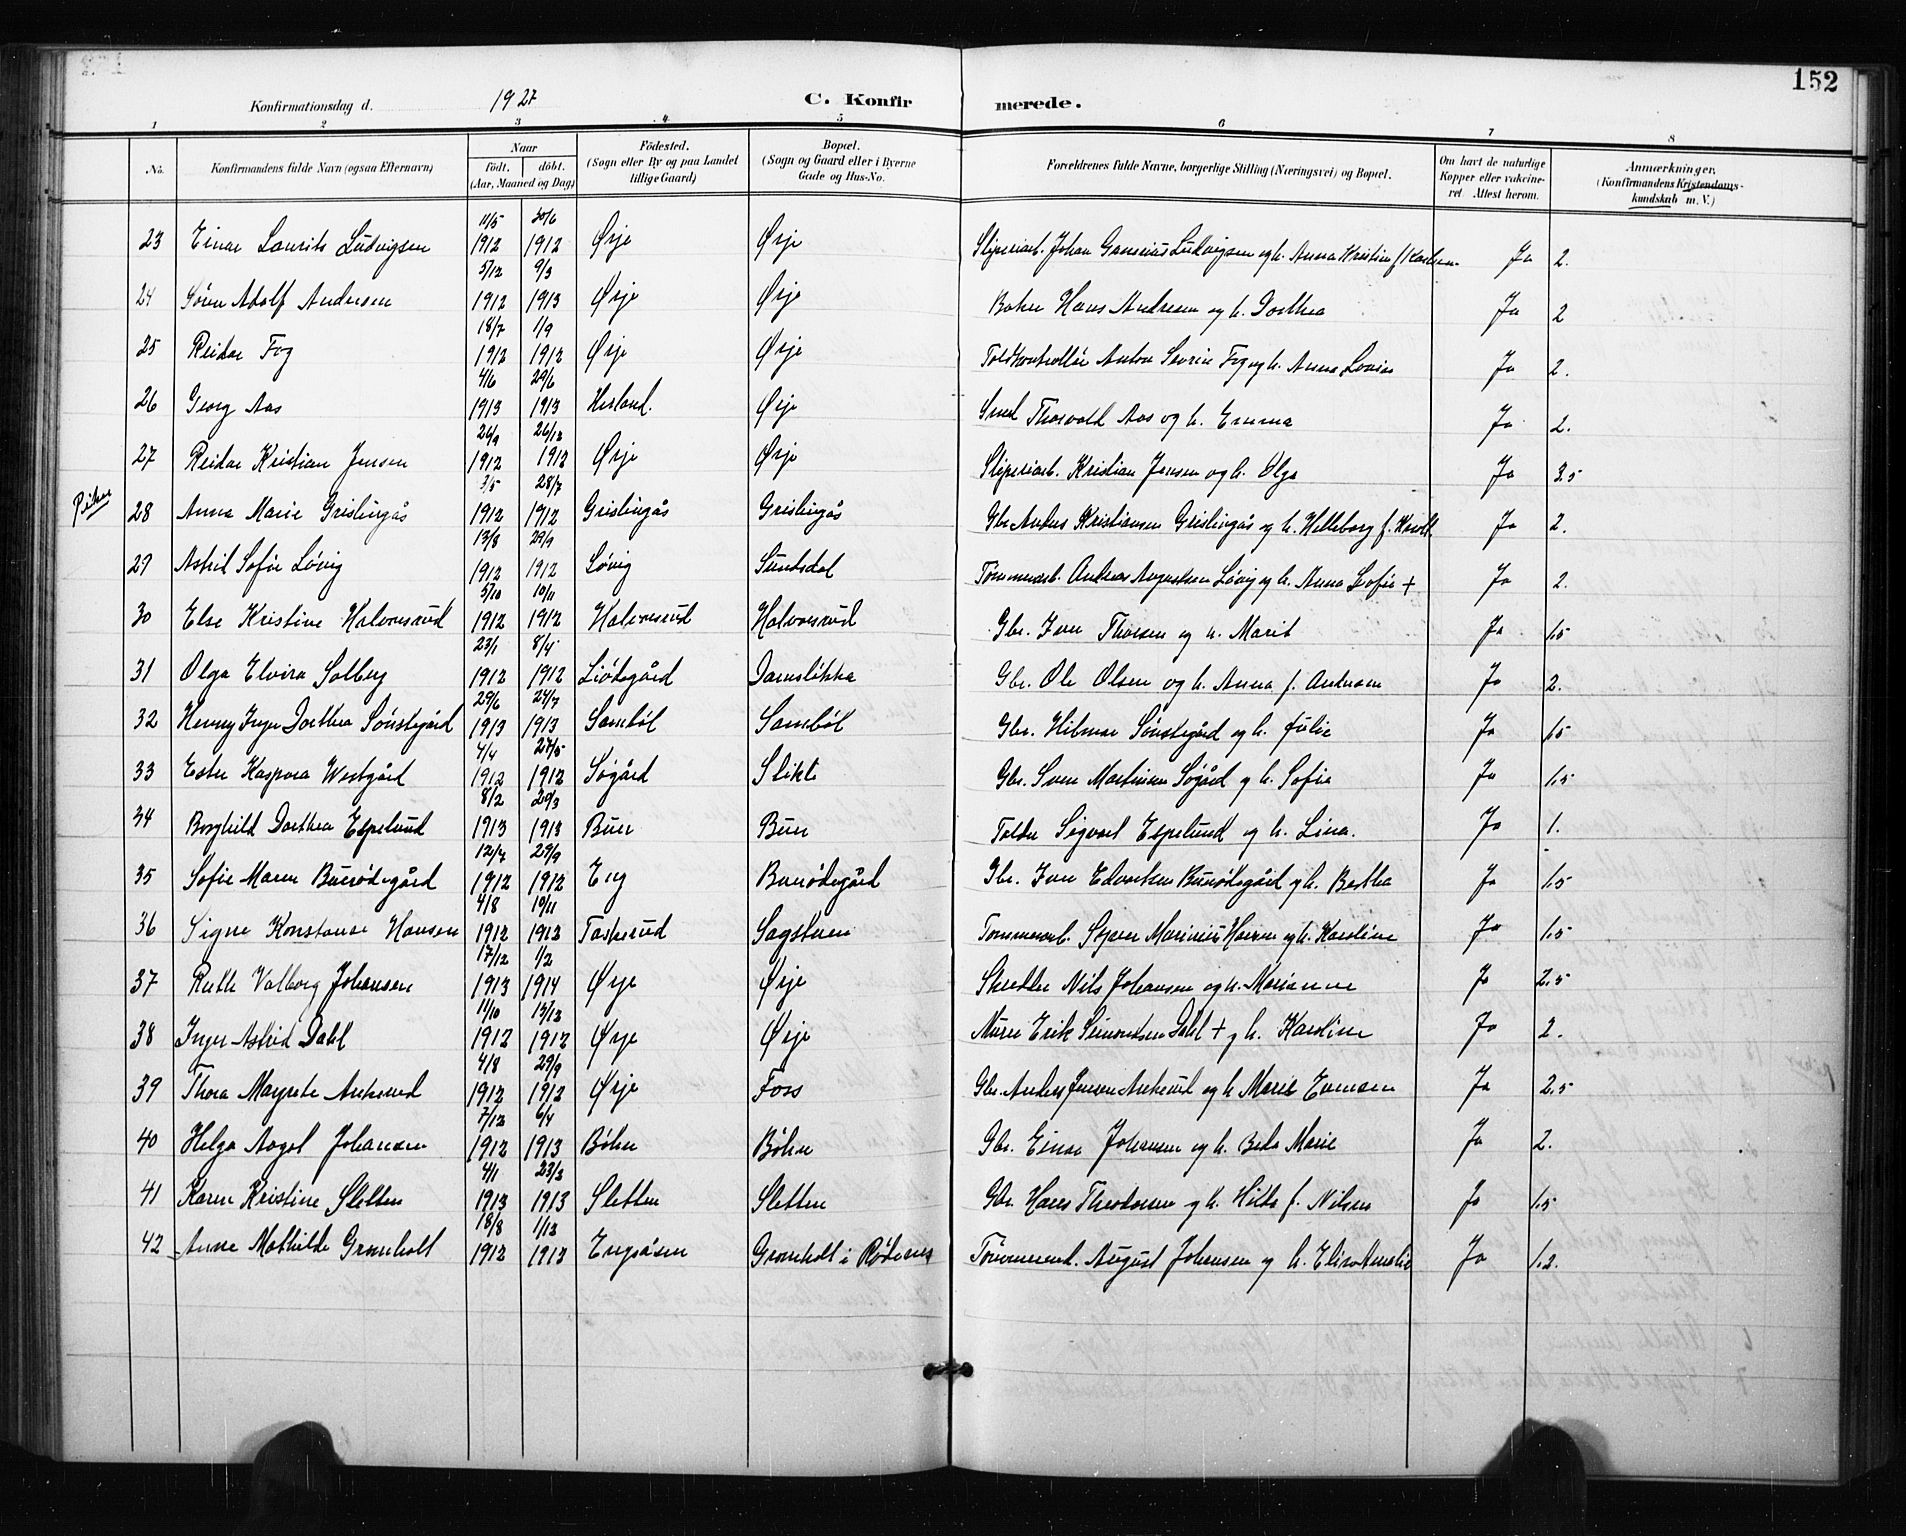 152
Konfirmationsdag d. 1927 C. Konfirmerede.
1 2 3 4 5 6 7 8
No. Konfirmandens fulde Navn (ogsaa Efternavn) Naar født. døbt. (Aar, Maaned og Dag) Fødested. (Sogn eller By og paa Landet tillige Gaard) Bopæl. (Sogn og Gaard eller i Byerne Gade og Hus-No. Forældrenes fulde Navne, borgerlige Stilling (Næringsvei) og Bopæl. Om havt de naturlige Kopper eller vakcineret. Attest herom. Anmærkninger. (Konfirmandens Kristendomskundskab m. V.)
23 Einar Laurits Ludvigsen 11/5 1912 30/6 1912 Ørje Ørje Sliperiarb. Johan Ludvigsen og h. Anna Kristine f. Karlsen Ja 2.
24 Sören Adolf Andersen 5/12 1912 9/3 1913 Ørje Ørje Baker Hans Andresen og h. Dorthea Ja 2
25 Reidar Fog 18/7 1912 1/9 1912 Ørje Ørje Toldkontrollör Anton Sevrin Fog og h. Anna Lovise Ja 2.
26 Georg Aas 4/6 1913 29/6 1913 Ørje Smed Thorvald Aas og h. Emma Ja 2.
27 Reidar Kristian Jensen 26/9 1912 26/12 1912 Ørje Ørje Sliperiarb. Kristian Jensen og h. Olga Ja 2.5
Piker 28 Anna Marie Grislingås 3/5 1912 28/7 1912 Grislingås Grislingås Gbr. Anders Kristiansen Grislingås og h. Helleborg Ja 2.
29 Astrid Sofie Lövig 13/8 1912 29/9 1912 Lövig Sundsdal Tömmerarb. Andreas Augustsen Lövig og h. Anna Sofie + Ja 2.
30 Else Kristine Halvorsrud 5/10 1912 10/11 1912 Halvorsrud Halvorsrud Gbr. Iver Thorsen og h. Marit Ja 1.5
31 Olga Elvira Solberg 23/1 1912 8/4 1912 Liödegård Damslökka Gbr. Ole Olsen og h. Anna f. Andersen Ja 2.
32 Henny Inger Dorthea Sönstegård 29/6 1913 27/7 1913 Sandböl Sandböl Gbr. Hilmar Sönstegård og h. Julie Ja 1.5
33 Ester Kaspara Westgård 4/4 1912 27/5 1912 Søgård Slikt Gbr. Sven Martinsen Søgård og h. Sofie Ja 1.5
34 Borghild Dorthea Espelund 8/2 1913 20/3 1913 Buer Buer Tolder Sigvart Espelund og h. Lina. Ja 1.
35 Sofie Maren Buerødegård 1912 29/9 1912 Eng Buerødegård Gbr. Iver Edvartsen Buerødegård og h. Bertha Ja 1.5
36 Signe Konstanse Hansen 4/8 1912 10/11 1912 Taskerud Sagstuen Tømmerarb. Marinius Hansen og h. Karoline Ja 1.5
37 Ruth Valborg Johansen 17/12 1913 1/2 1914 Ørje Ørje Skredder Nils Johansen og h. Marianne Ja 2.5
38 Inger Astrid Dahl 11/10 1912 15/12 1912 Ørje Ørje Murer Erik Simonsen Dahl + og h. Karoline Ja 2.
39 Thora Margrete Ankerud 4/8 1912 29/9 1912 Ørje Foss Gbr. Anders Jensen Ankerud og h. Marie Evensen Ja 2.5
40 Helga Aagot Johansen 7/12 1912 6/4 1913 Böhn Böhn Gbr. Einar Johansen og h. Beda Marie Ja 2.
41 Karen Kristine Sletten 4/1 1913 23/3 1913 Sletten Sletten Gbr. Hans Theodorsen og h. Hilda f. Nilsen Ja 1.5
42 Anne Mathilde Gromholt 18/8 1912 1/12 1912 Engåsen Gromholt i Rødenes Tömmerarb. August Johansen og h. Elise Amalie Ja 1.2.